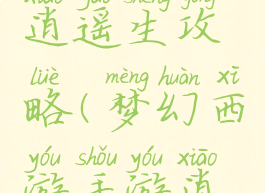 xiāo yáo shēng gōng
逍遥生攻
lüè mèng huàn xī
略(梦幻西
yóu shǒu yóu xiāo
游手游逍